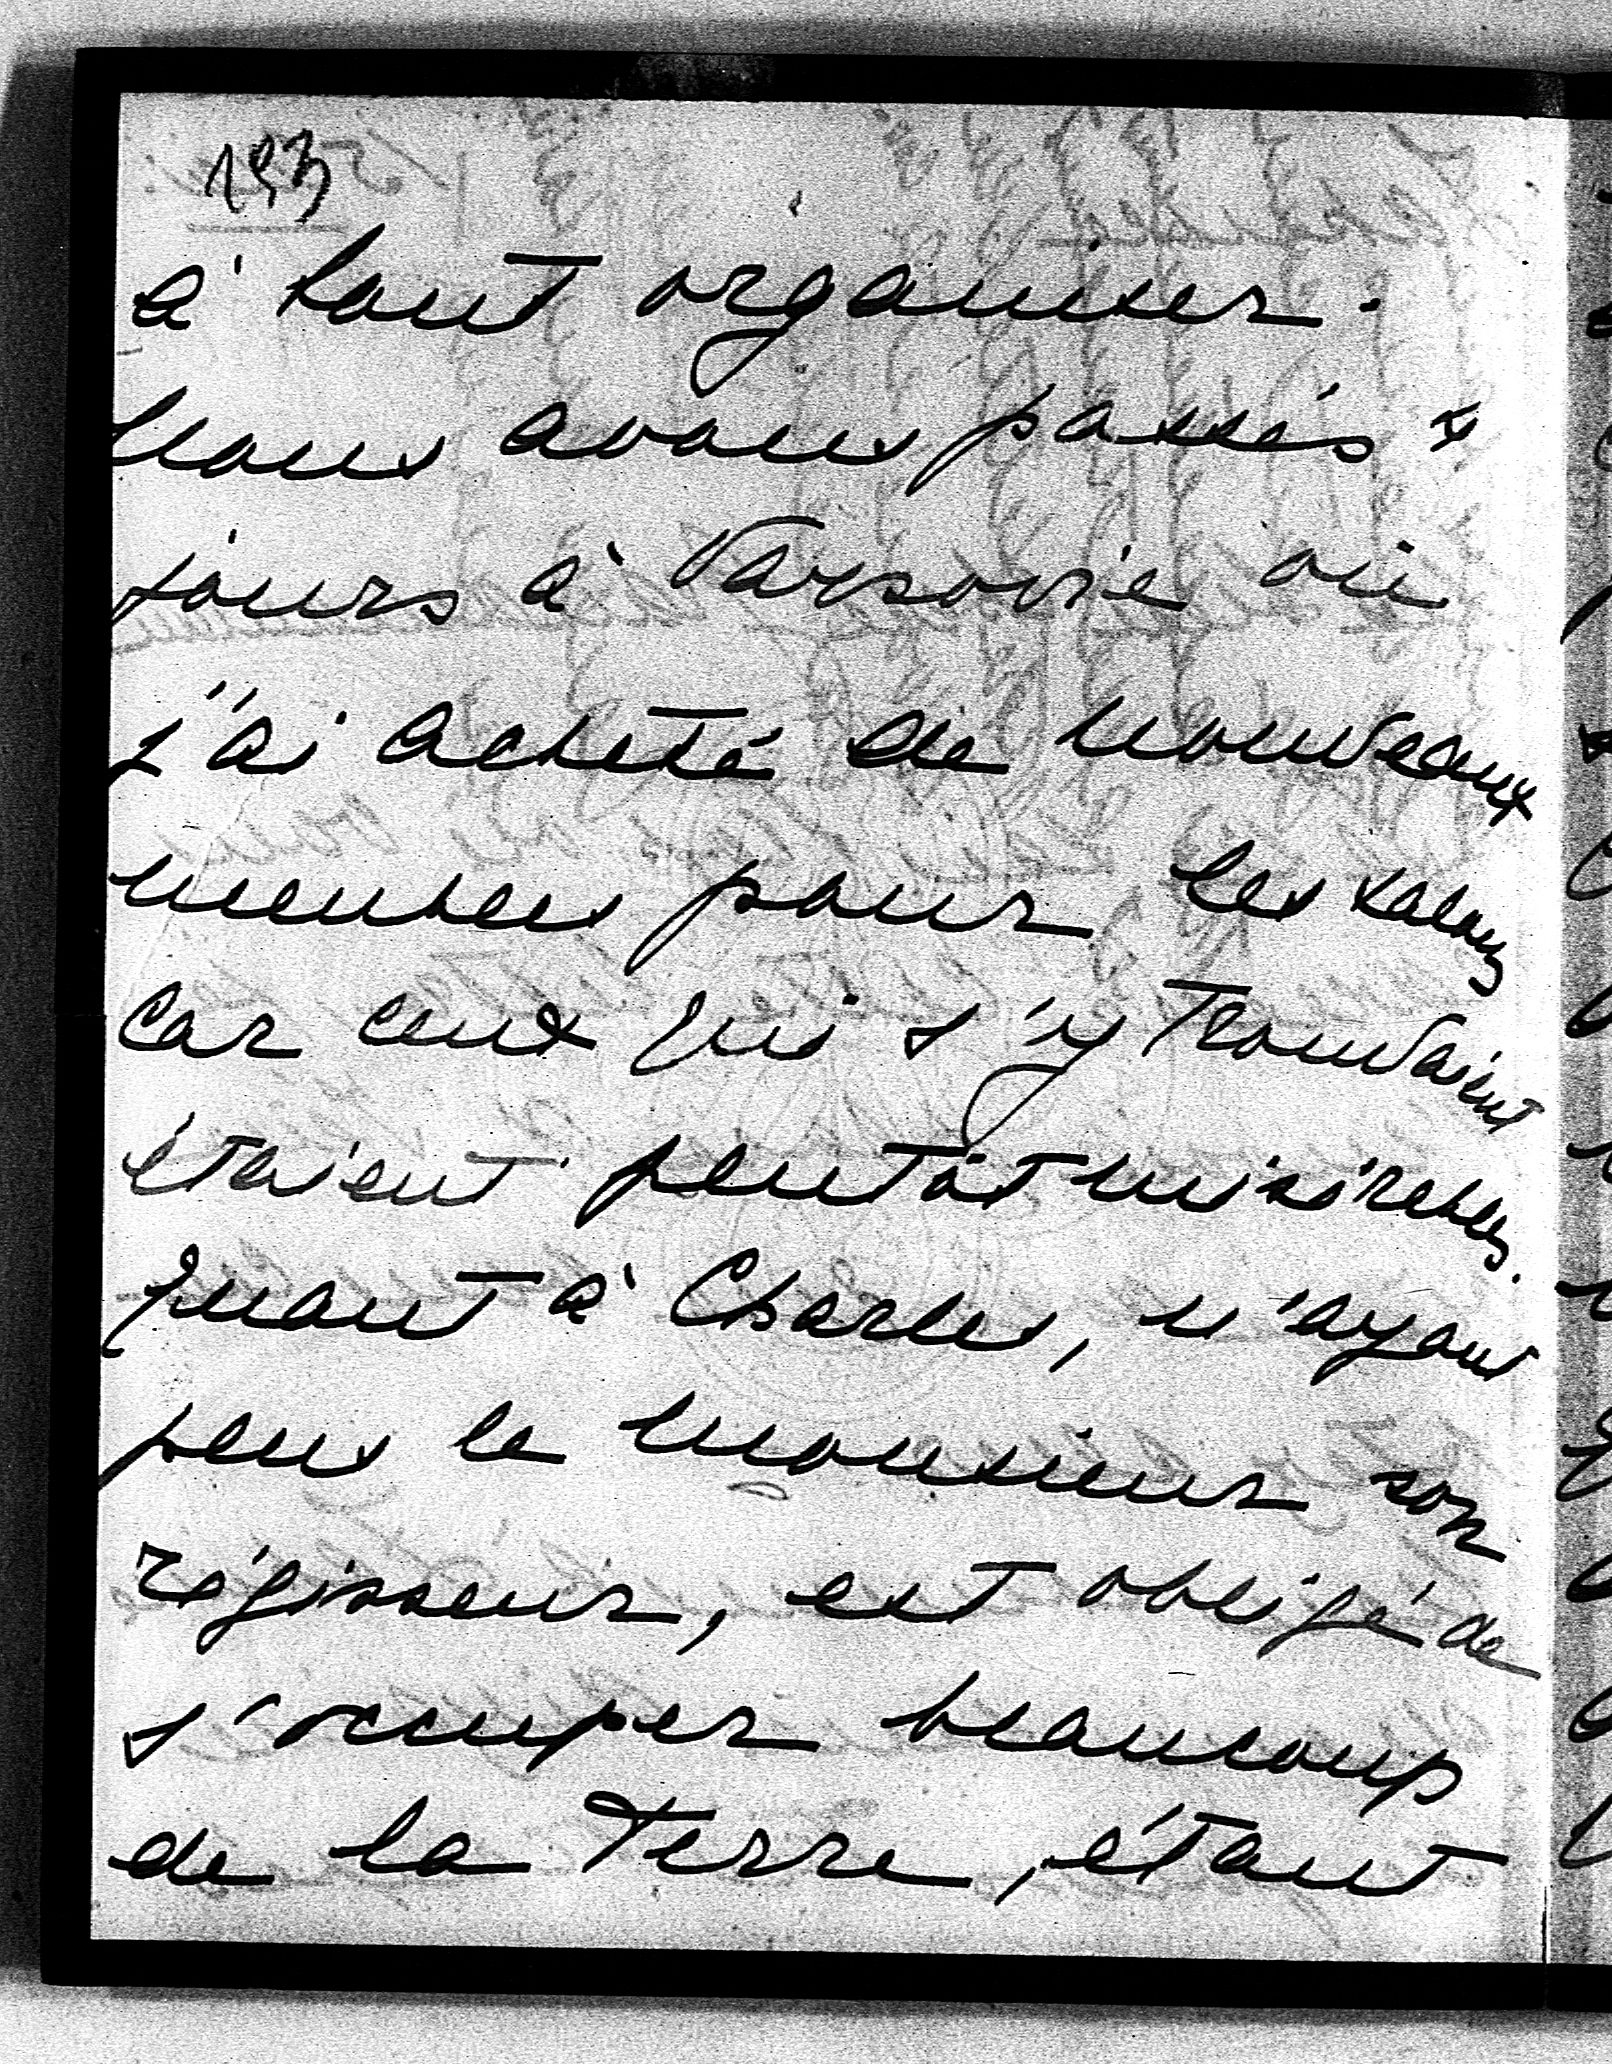 193
à tout organiser.
Nous avons passés
jours à Varsovie où
j'ai acheté de nouveaux
meubles pour les salons
car ceux qui s'y trouvaient
étaient plutôt misérables.
Quant à Charles, n'ayant
plus le monsieur son
régisseur, est obligé de
s'occuper beaucoup
de la Terre, étant